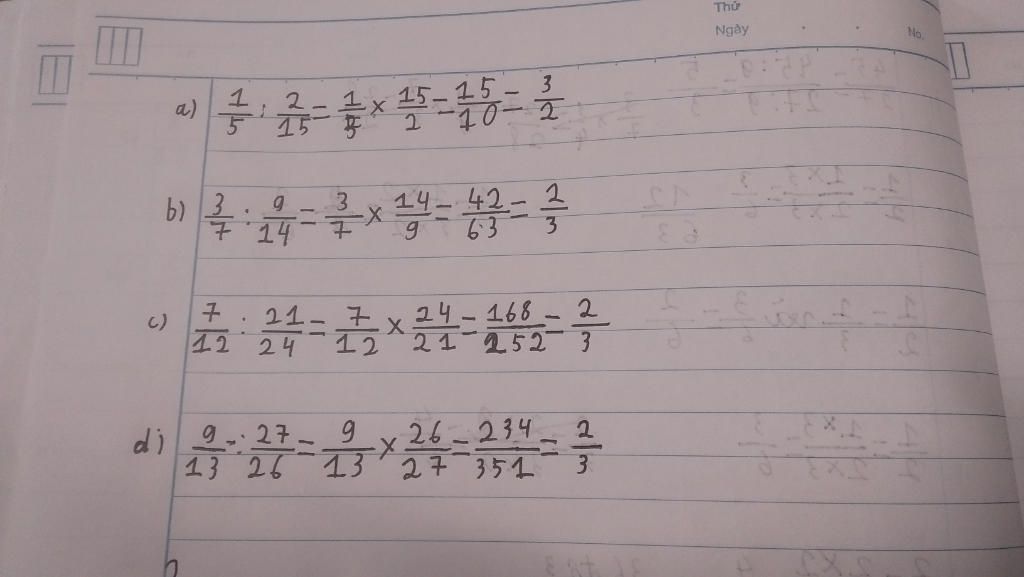 Thứ
Ngày . . No.
a) 1/5 : 2/15 = 1/5 × 15/2 = 15/10 = 3/2
b) 3/7 : 9/14 = 3/7 × 14/9 = 42/63 = 2/3
c) 7/12 : 21/24 = 7/12 × 24/21 = 168/252 = 2/3
d) 9/13 : 27/26 = 9/13 × 26/27 = 234/351 = 2/3